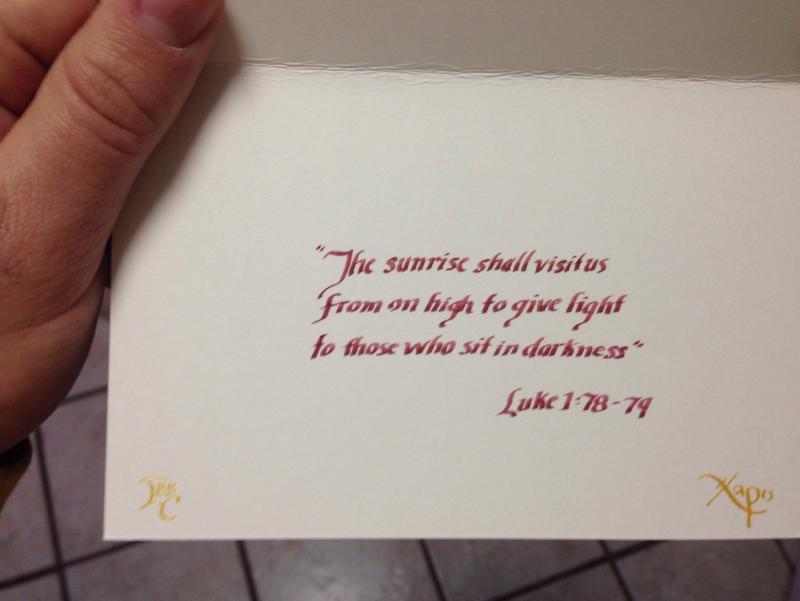 "The sunrise shall visit us
from on high to give light
to those who sit in darkness"
Luke 1:78-79
Χαρις